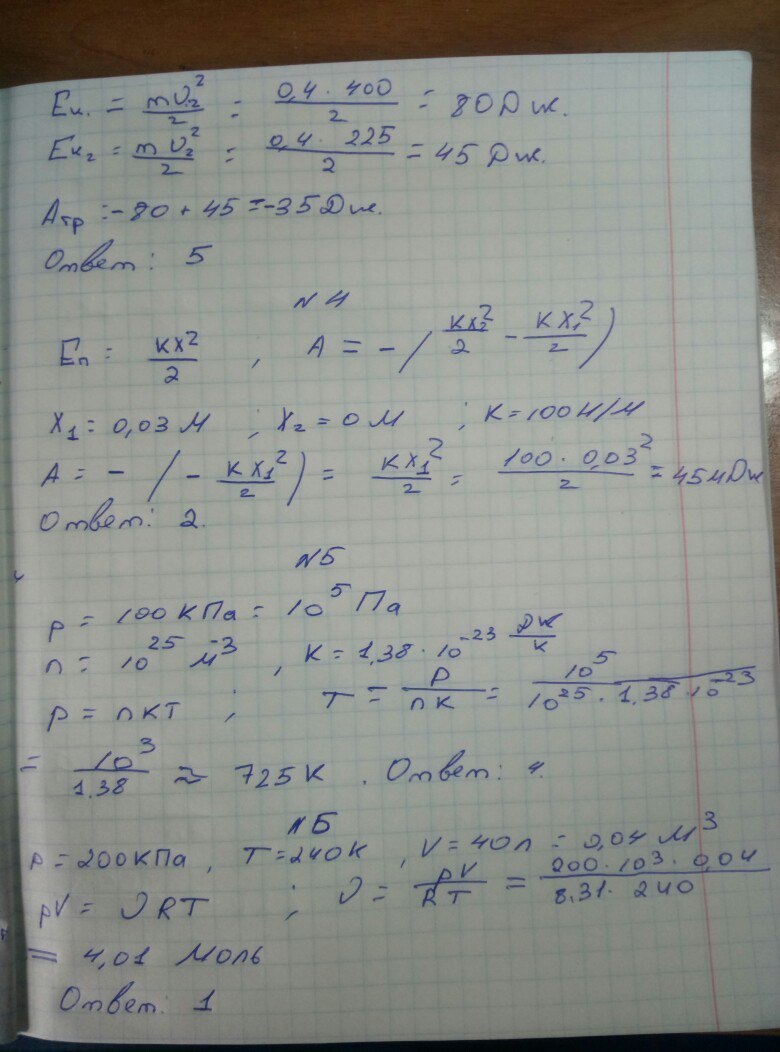 Eк. = mυ₂²/2 = 0,4 · 400/2 = 80 Дж.
Eк₂ = mυ₂²/2 = 0,4 · 225/2 = 45 Дж.
Aтр = -80 + 45 = -35 Дж.
Ответ: 5
N4
Eп = kx²/2 ; A = -(kx₂²/2 - kx₁²/2)
x₁ = 0,03 м ; x₂ = 0 м ; k = 100 Н/м
A = -(-kx₁²/2) = kx₁²/2 = 100 · 0,03²/2 = 45 мДж
Ответ: 2.
N5
p = 100 кПа = 10⁵ Па
n = 10²⁵ м⁻³ , k = 1,38 · 10⁻²³ Дж/к
p = nkT ; T = p/nk = 10⁵/10²⁵ · 1,38 · 10⁻²³
= 10³/1,38 ≈ 725 К . Ответ: 4.
N5
p = 200 кПа , T = 240 К , V = 40 л = 0,04 м³
pV = νRT ; ν = pV/RT = 200 · 10³ · 0,04/8,31 · 240
= 4,01 Моль
Ответ: 1